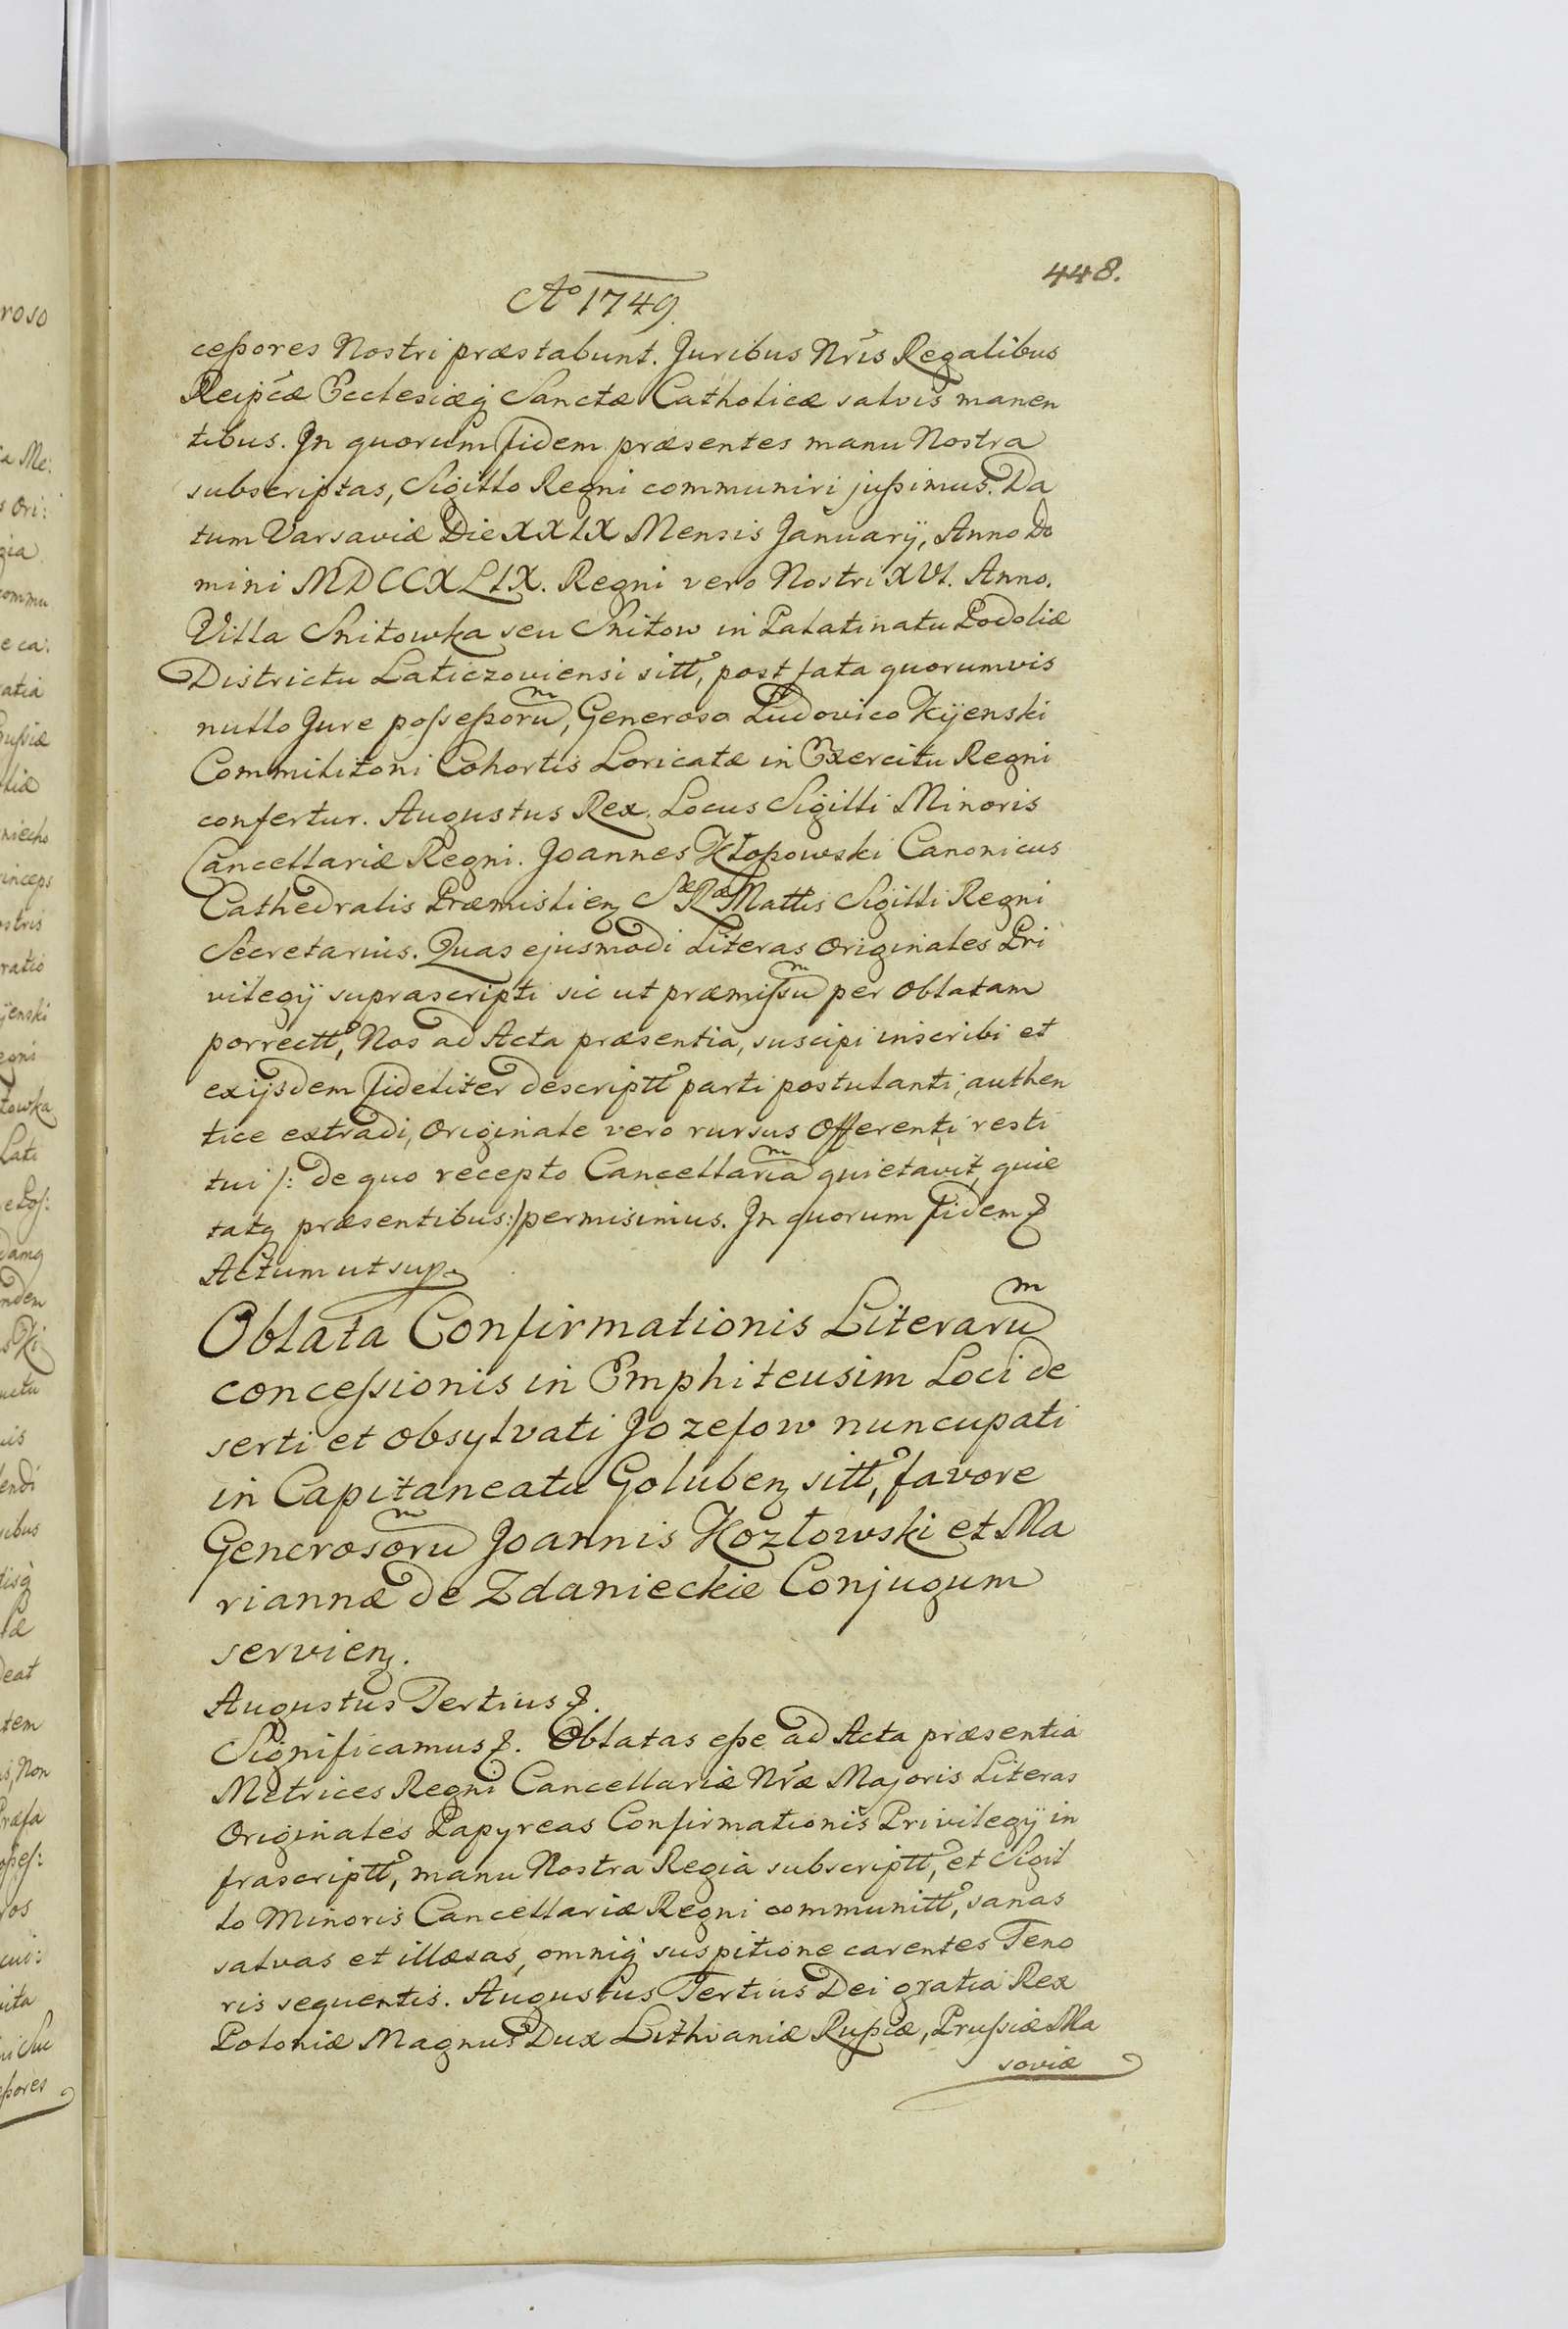 448.
Ao 1749.
ceßores Nostri præstabunt. Juribus Nr̃is Regalibus
Reip̃cæ Ecclesiæq Sanctæ Catholicæ salvis manen
tibus. Jn quorum fidem præsentes manu Nostra
subscriptas, Sigillo Regni communiri jußimus. Da
tum Varsaviæ Die XXIX Mensis Januarÿ, Anno Do
mini MDCCXLIX. Regni vero Nostri XVI. Anno.
Villa Snitowka seu Snitow in Palatinatu Podoliæ
Districtu Laticzoviensi sitt, post fata quorumvis
nullo Jure poſseßorum, Generoso Ludovico Kijenski
Commilitoni Cohortis Loricatæ in Exercitu Regni
confertur. Augustus Rex. Locus Sigilli Minoris
Cancellariæ Regni. Joannes Kłoßowski Canonicus
Cathedralis Præmislienȝ Sæ Ræ Mattis Sigilli Regni
Secretarius. Quas ejusmodi Literas Originales Pri
vilegÿ suprascripti sic ut præmiſsum per Oblatam
porrectt, Nos ad Acta præsentia, suscipi inscribi et
exijsdem fideliter descriptt parti postulanti, authen
tice extradi, Originale vero rursus Offerenti resti
tui /: de quo recepto Cancellariam quietavit, quie
tatq præsentibus:/ permisimus. Jn quorum fidem &
Actum ut sup.
Oblata Confirmationis Literarum
conceſsionis in Emphiteusim Loci de
serti et obsylvati Jozefow nuncupati
in Capitaneatu Golubenȝ sitt, favore
Generosorum Joannis Kozłowski et Ma
riannæ de Zdanieckie Conjugum
servienȝ.
Augustus Tertius &.
Significamus &. Oblatas eße ad Acta præsentia
Metrices Regni Cancellariæ Nr̃æ Majoris Literas
Originales Papyreas Confirmationis Privilegÿ in
frascriptt, manu Nostra Regia subscriptt, et Sigil
lo Minoris Cancellariæ Regni communitt, sanas
salvas et illæsas, omniq suspitione carentes Teno
ris sequentis. Augustus Tertius Dei gratia Rex
Poloniæ Magnus Dux Lithvaniæ Rußiæ, Prußiæ Ma
soviæ